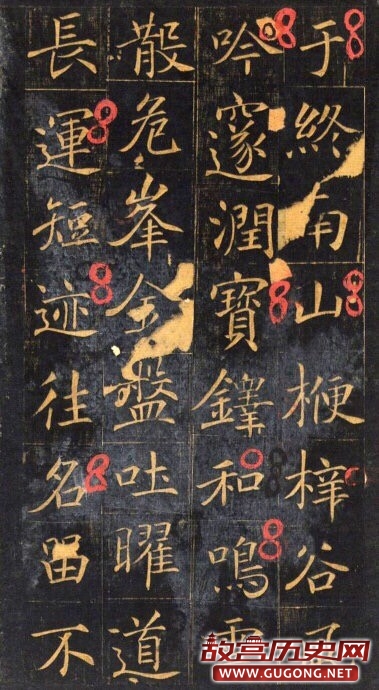 于終南山楩梓谷
吟邃潤寶鐸和鳴
散危峯金盤吐曜道
長運短迹往名留不
故宫历史网
WWW.GUGONG.NET